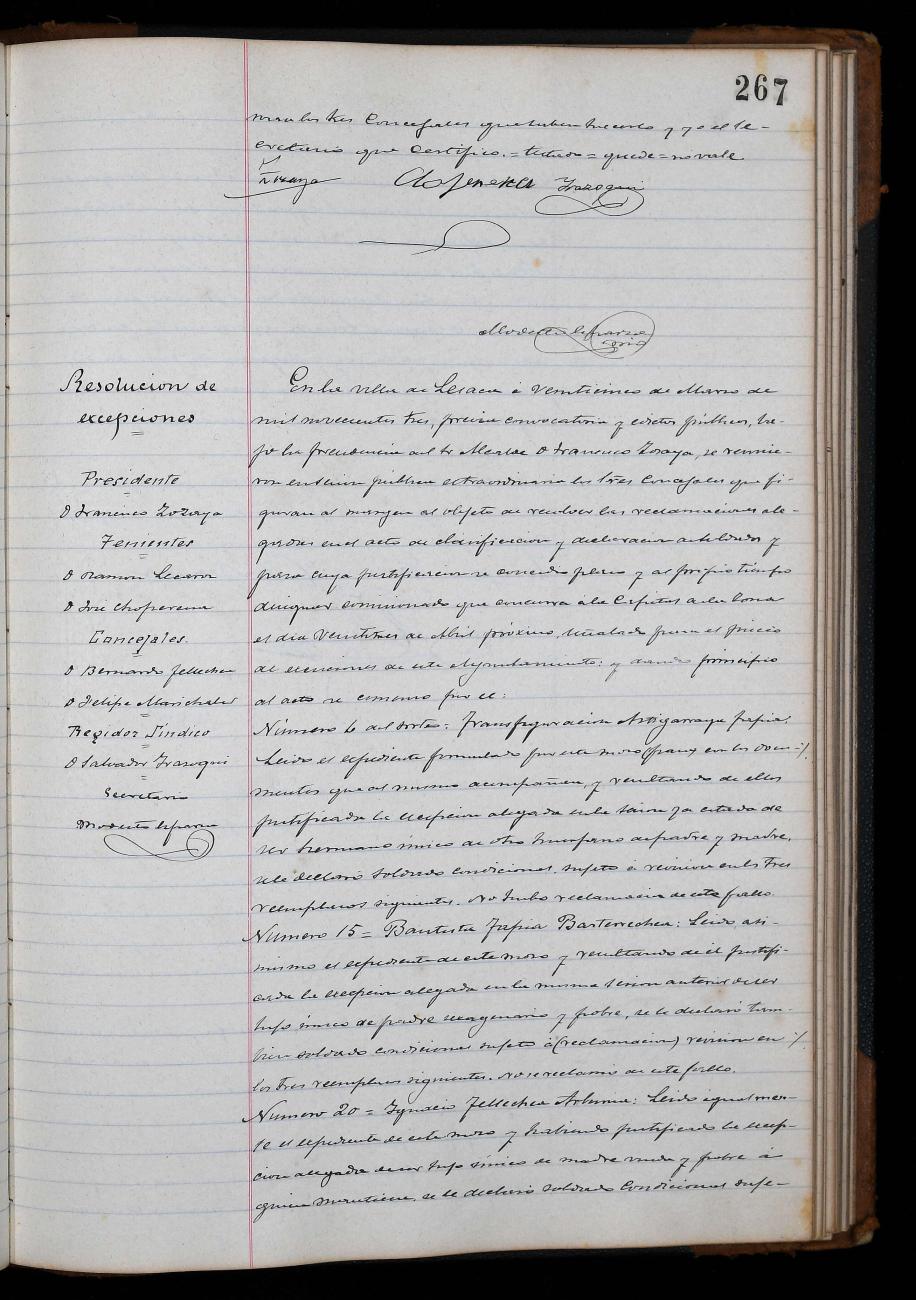 267
man los tres Concejales que saben hacerlo y yo el Se-
cretario que certifico. = testado = quede = no vale
Zozaya Irazoqui
Modesto
Resolucion de
excepciones
Presidente
D Francisco Zozaya
Tenientes
D Ramon Lecaroz
D José Choperena
Concejales
D Bernardo Tellechea
D Felipe Marichalar
Regidor Síndico
D Salvador Irazoqui
Secretario
Modesto
En la villa de Lesaca á veinticinco de Marzo de
mil novecientos tres, previa convocatoria y edictos públicos, ba-
jo la presidencia del Sr Alcalde D Francisco Zozaya, se reunie-
ron en sesion pública extraordinaria los tres Concejales que fi-
guran al margen al objeto de resolver las reclamaciones ale-
gadas en el acto de clasificacion y declaracion de soldados y
para cuya justificacion se concedio plazo y al propio tiempo
designar comisionado que concurra á la Capital de la Zona
el dia veintitres de Abril próximo, señalado para el juicio
de exenciones de este Ayuntamiento: y dando principio
al acto se comenzo por el:
Número 6 del sorteo: Transfiguracion Artigarraga Tapia.
Leido el expediente formulado por este mozo (para) con los docu- ./.
mentos que al mismo acompañan, y resultando de ellos
justificada la excepcion alegada en la sesion ya citada de
ser hermano único de otro huerfano de padre y madre,
se le declaró soldado condicional, sujeto á revision en los tres
reemplazos siguientes. No hubo reclamacion de este fallo.
Número 15 = Bautista Tapia Barterrechea: Leido asi-
mismo el expediente de este mozo y resultando de él justifi-
cada la excepcion alegada en la misma sesion anterior de ser
hijo único de padre sexagenario y pobre, se le declaró tam-
bien soldado condicional sujeto á (reclamacion) revision en ./.
los tres reemplazos siguientes. No se reclamó de este fallo.
Número 20 = Ygnacio Tellechea: Leido igualmen-
te el expediente de este mozo y habiendo justificado la excep-
cion alegada de ser hijo único de madre viuda y pobre á
quien mantiene, se le declaró soldado condicional suje-